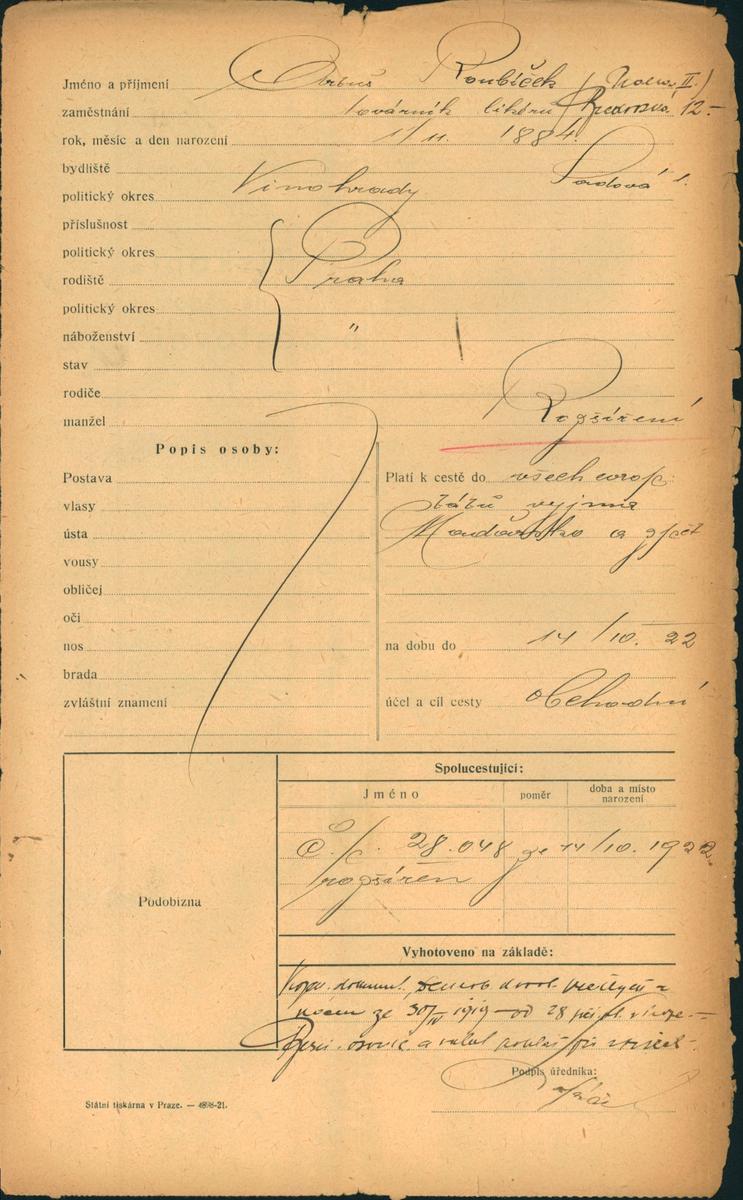 Jméno a příjmení Roubíček Praha II.
zaměstnání továrník likérů Bredovská 12.-
rok, měsíc a den narození 1/11. 1884.
bydliště Sadová 1.
politický okres Vinohrady
příslušnost
politický okres
rodiště Praha
politický okres
náboženství "
stav
rodiče
manžel Rozšíření
Popis osoby:
Postava
vlasy
ústa
vousy
obličej
oči
nos
brada
zvláštní znamení
Platí k cestě do všech evrop.
států vyjma
Maďarsko a zpět
na dobu do 14/10. 22
účel a cíl cesty obchodní
Spolucestující:
Jméno poměr doba a místo narození
Č. p. 28.048 ze 14/10. 1922.
rozšířen
Podobizna
Vyhotoveno na základě:
ze 30/IV 1919 – od 28
a
Podpis úředníka:
Státní tiskárna v Praze. — 4898-21.